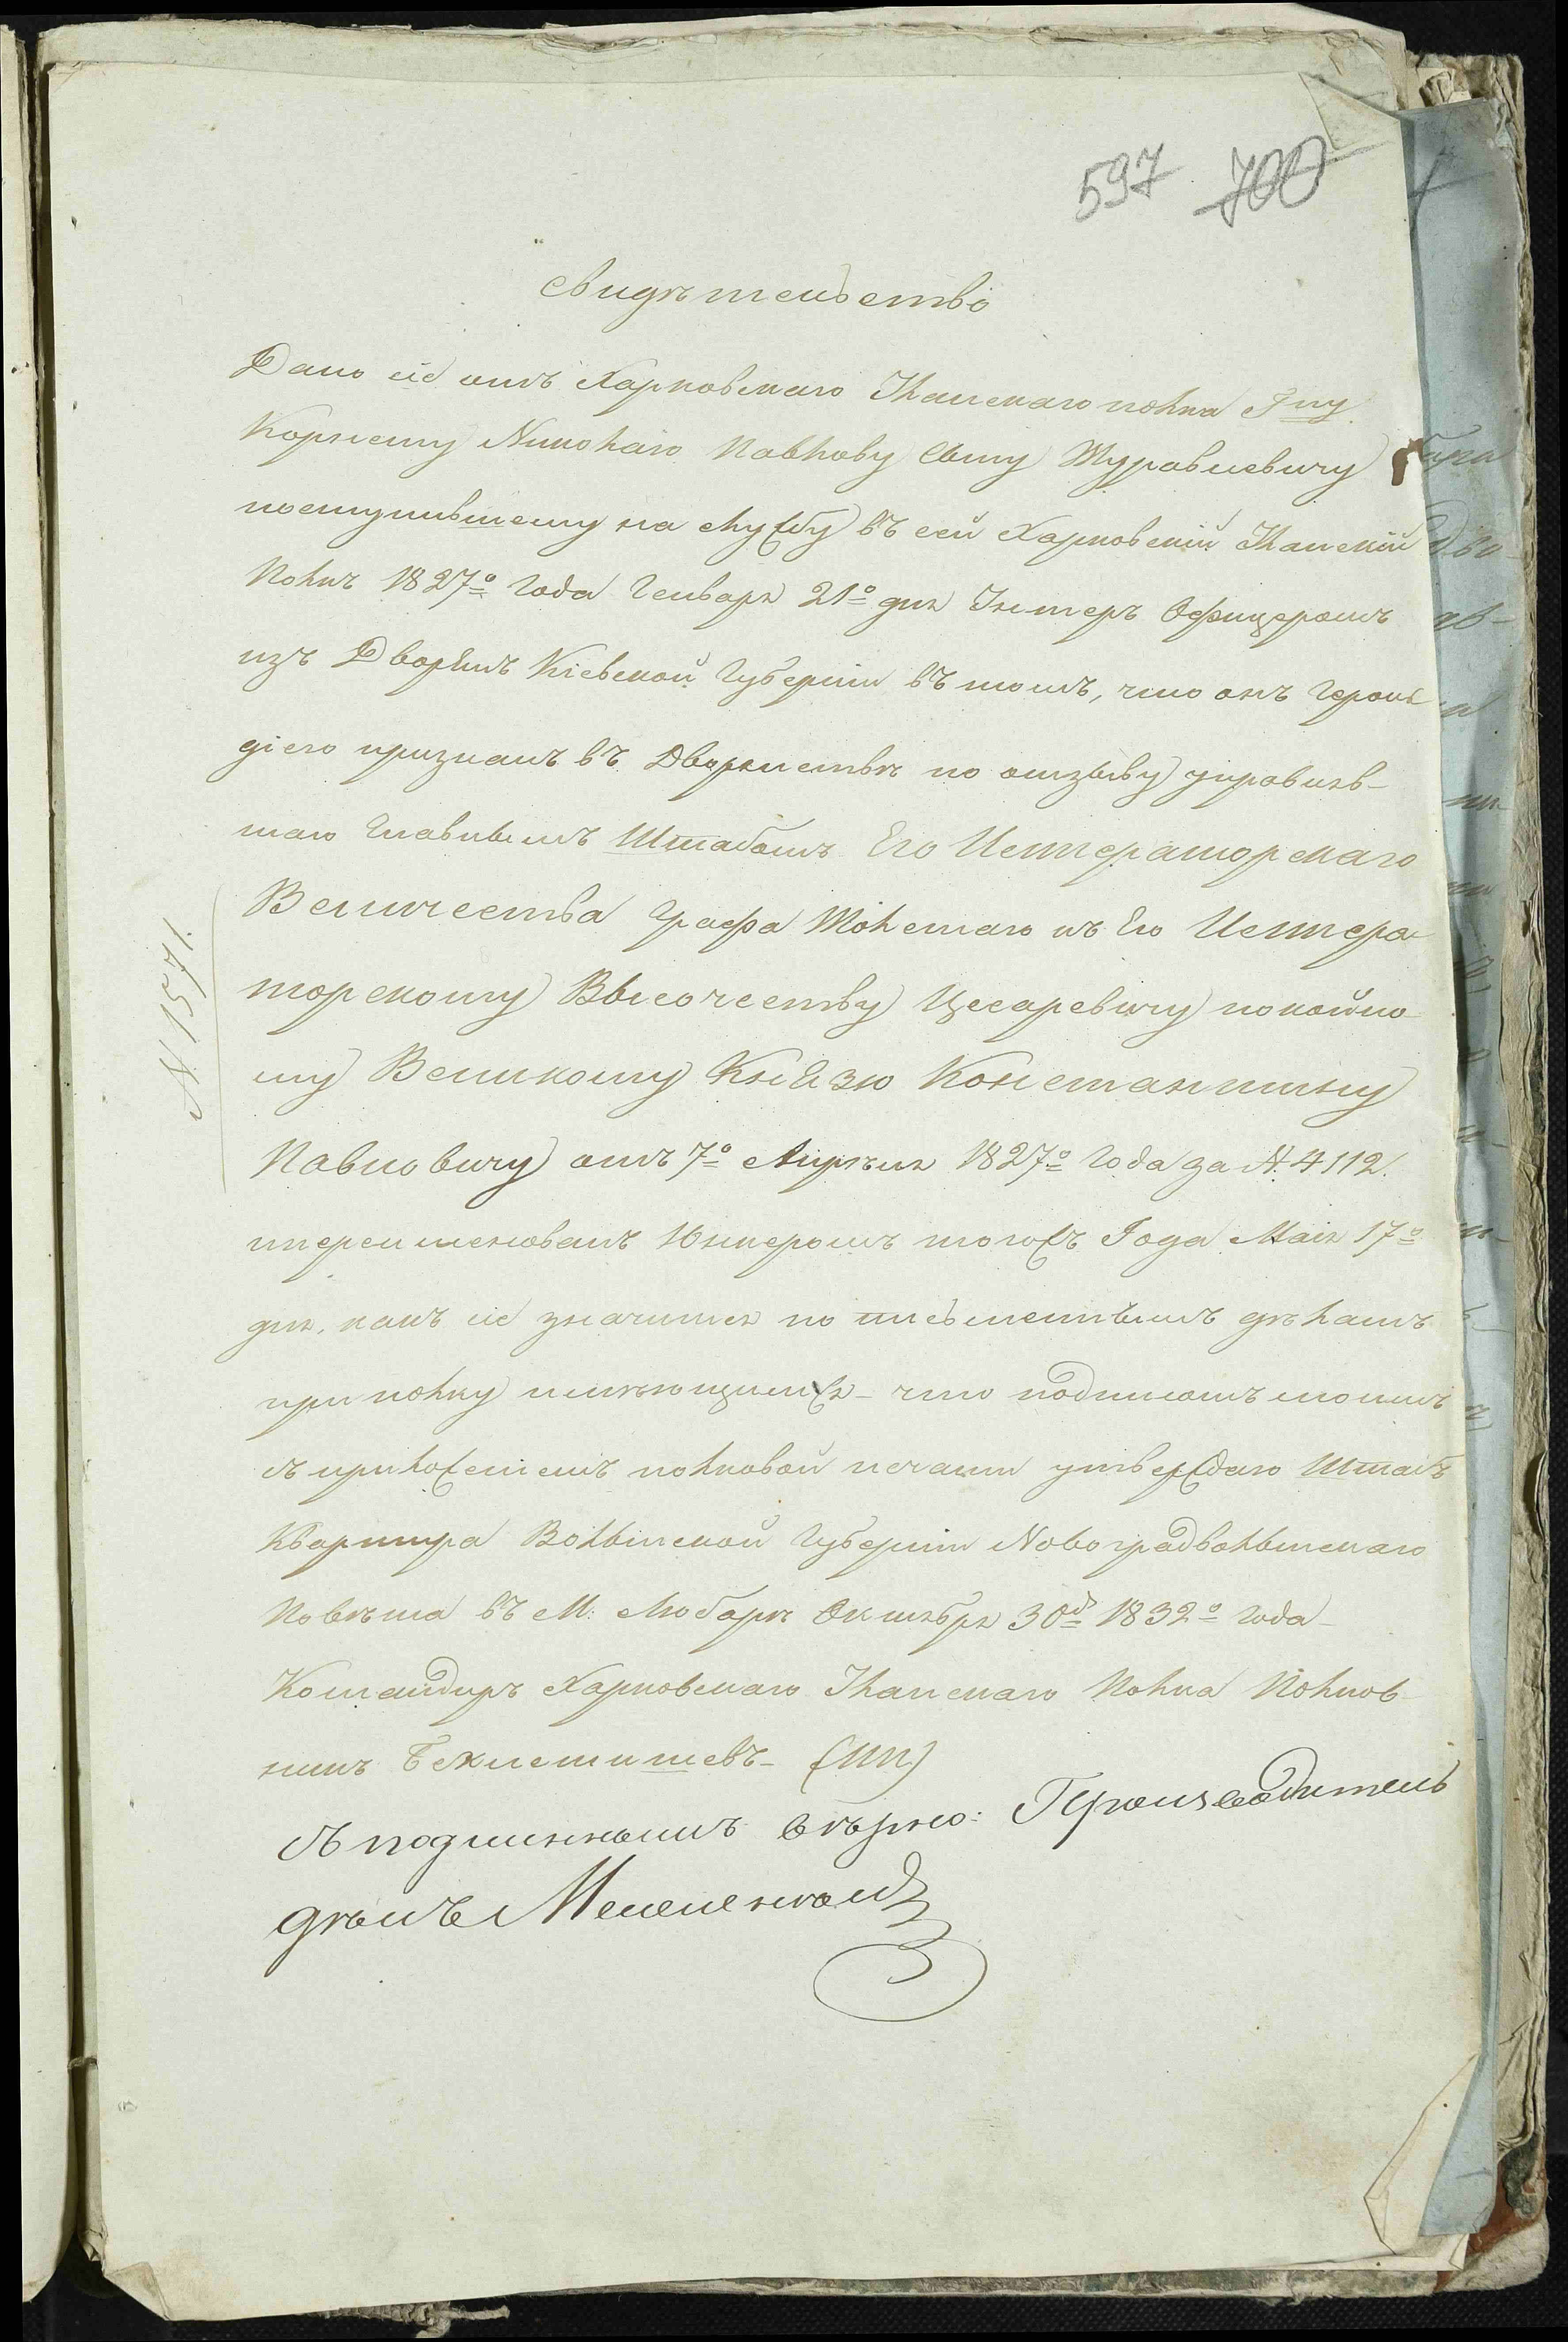 597 700
Свидѣтельство
Дано сіе отъ Харковскаго Уланскаго полка Г<u>ну</u>
Корнету Николаю Павлову Сыну Журавлевичу
поступившему на службу въ сей Харковскій Уланскій
Полкъ 1827го Года Генваря 21го дня Унтеръ Офицеромъ
изъ Дворянъ Кіевской Губерніи въ томъ, что онъ Героль
діею признанъ въ Дворянствѣ по отзыву управляв-
шаго Главнымъ Штабомъ Его Императорскаго
Величества Графа Толстаго къ Его Импера-
торскому Высочеству Цесаревичу покойно-
му Великому Князю Константину
Павловичу отъ 7го Апрѣля 1827го Года за № 4112.
переименованъ Юнкеромъ тогожъ Года Маія 17го
дня, какъ сіе значится по письменнымъ дѣламъ
при полку имѣющимся - что подписомъ моимъ
съ приложеніемъ полковой печати утверждаю Штабъ
Квартира Волынской Губерніи Новоградволынскаго
Повѣта въ М: Любарѣ Октября 30го 1832го Года
Командиръ Харковскаго Уланскаго Полка Полков-
никъ Беклемишевъ - (МП)
Съ подлиннымъ вѣрно: Производитель
дѣлъ
№ 1571.